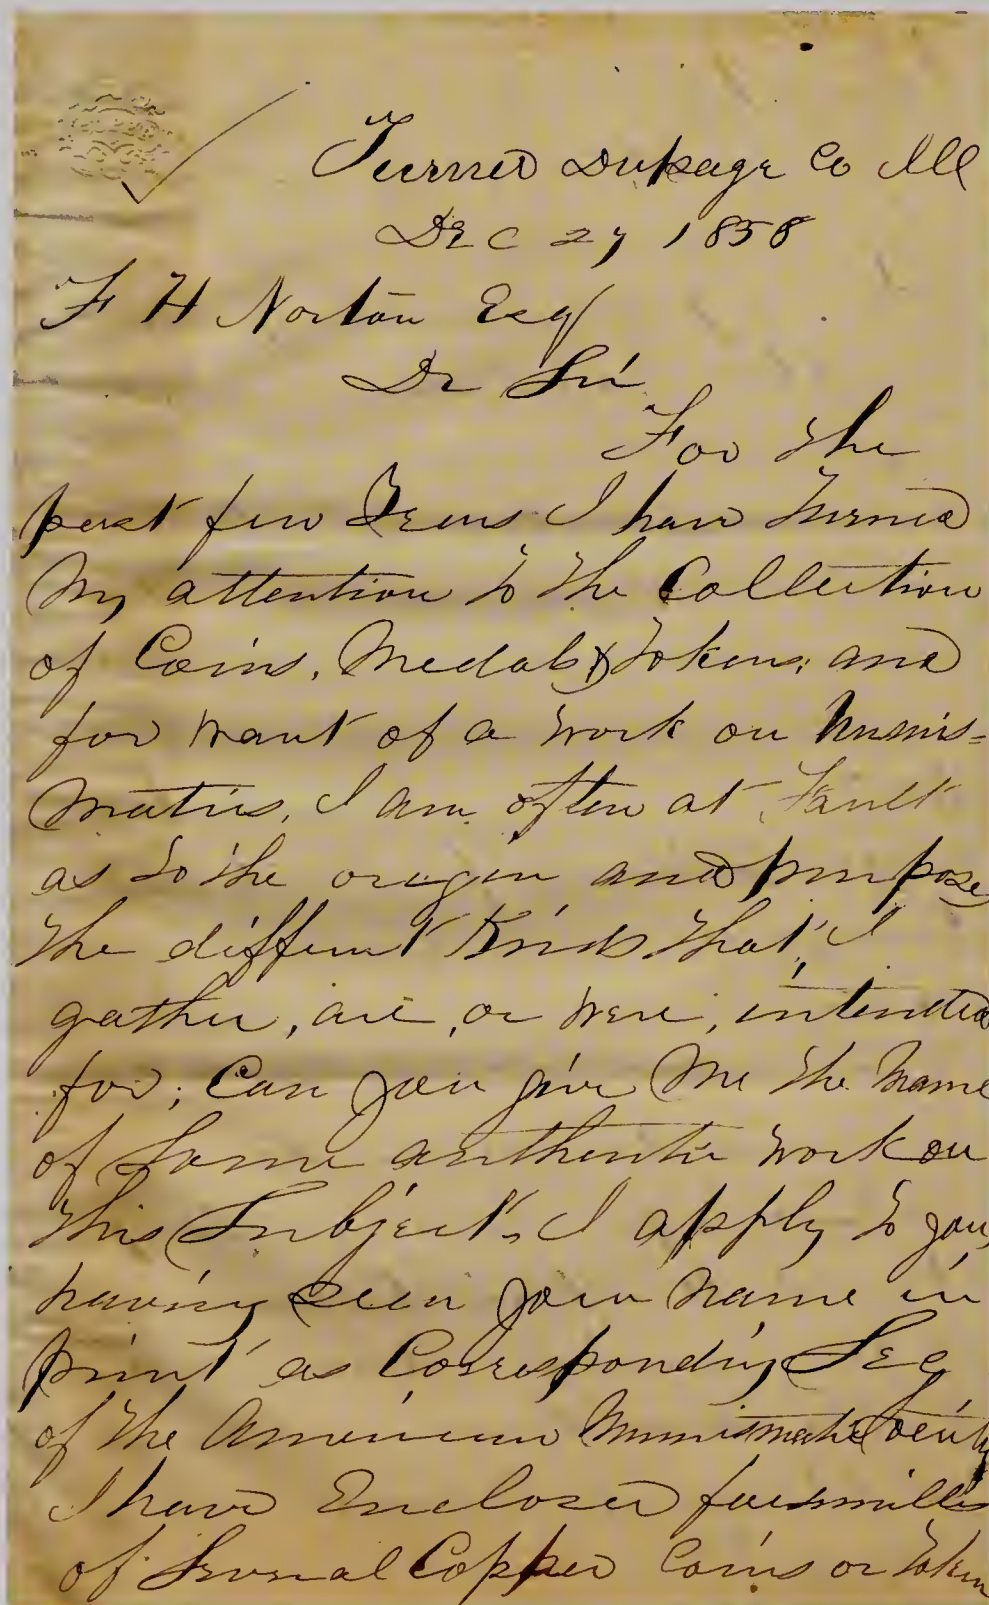 Turner Dupage Co Ill
Dec 27 1858
F H Norton Esq
Dr Sir
For the
past few Years I have turned
My attention to the Collection
of Coins, Medals & Tokens; and
for want of a work on Numis=
matics, I am often at Fault
as to the origin and purpose
the different Kinds that I
gather, are, or were, intended
for; Can you give Me the Name
of Some authentic work on
this Subject. I apply to you,
having seen your Name in
print as Corresponding Sec
of the American Numismatic Society
I have Enclosed facsimilles
of Several Copper Coins or Token